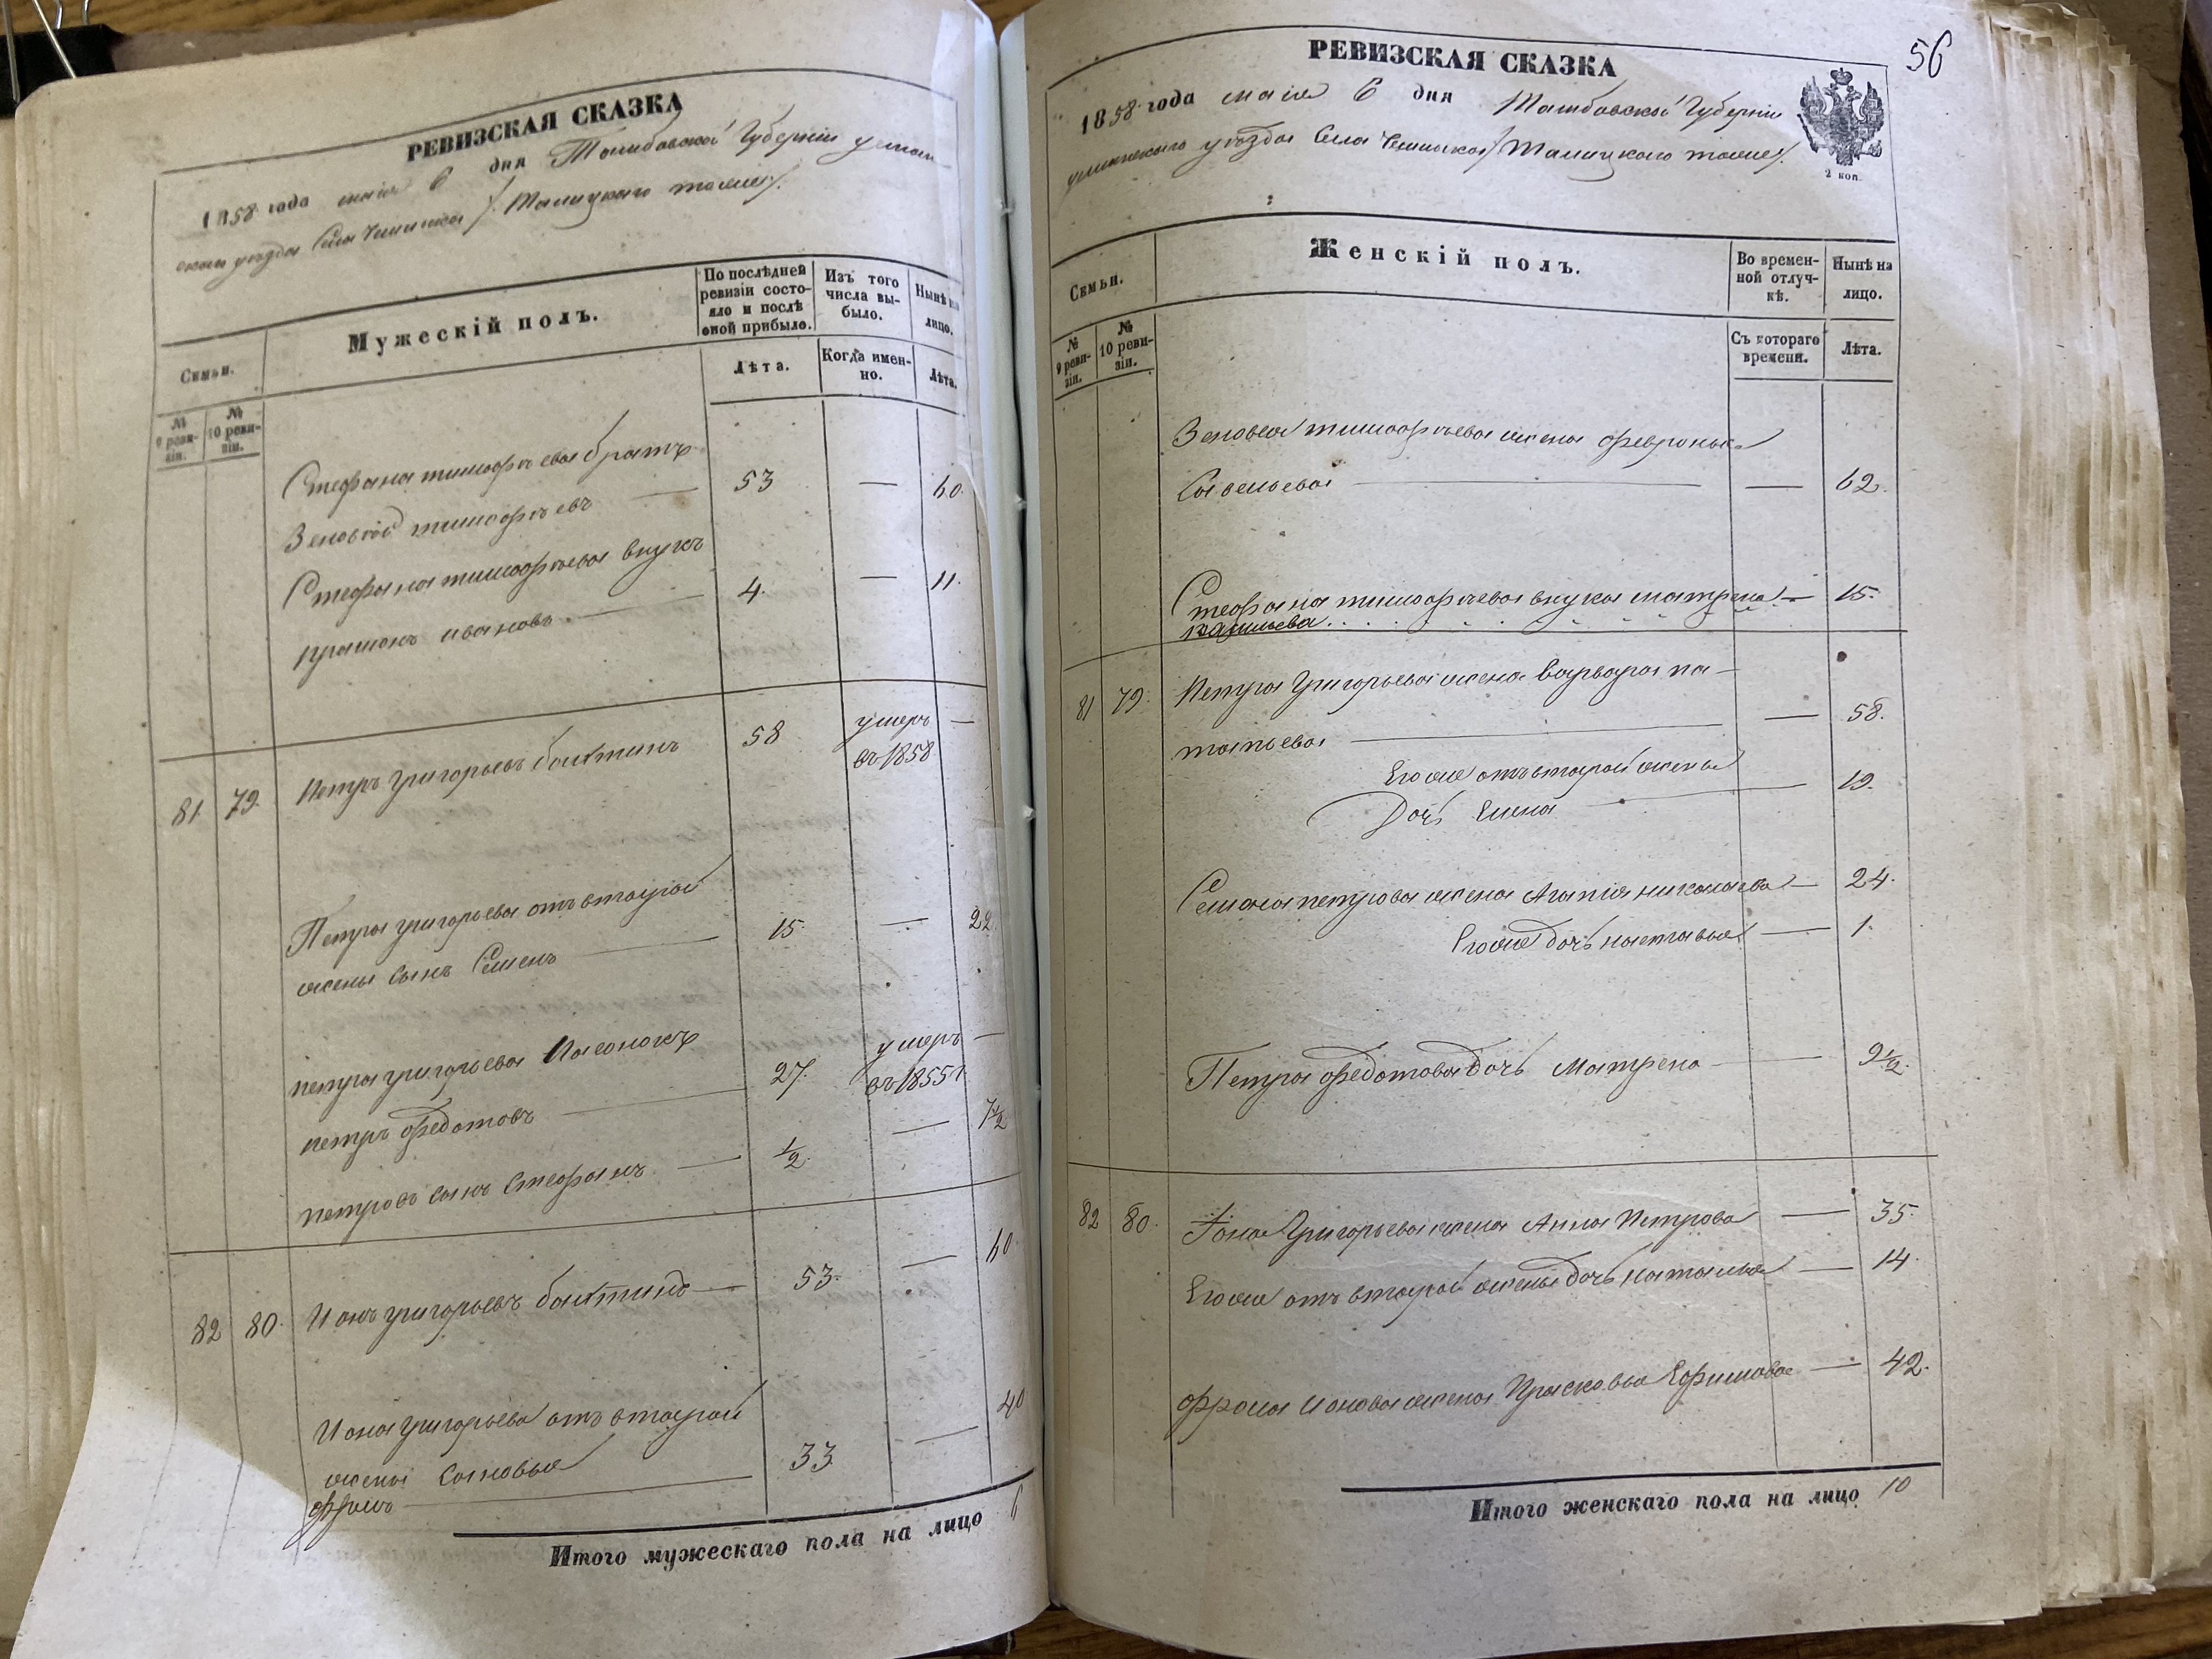 РЕВИЗСКАЯ СКАЗКА
1858 года маія 6 дня Тамбовской Губерніи усман
скаго уезда Села Талицкаго тожъ
Семьи.
Мужескій полъ.
По послѣдней ревизіи состояло и послѣ оной прибыло.
Изъ того числа выбыло.
Нынѣ на лицо.
№ 9 ревизіи.
№ 10 ревизіи.
Лѣта.
Когда именно.
Лѣта.
Стефана тимофѣева братъ
Зеновій тимофѣевъ — 53 — 60.
Стефана тимофѣева внукъ
ивановъ — 4. — 11.
81. 79. Петръ григорьевъ 58 умеръ —
въ 1858
Петра григорьева отъ второй
жены сынъ Семенъ — 15. — 22
петра григорьева Пасынокъ
петръ федотовъ — 27. умеръ —
въ 1855 г.
петровъ сынъ Стефанъ — 1/2. — 7 1/2
82 80. Іонъ григорьевъ — 53. — 60
Иона григорьева отъ второй
жены сыновья
фролъ — 33 — 40
Итого мужескаго пола на лицо 6
56
РЕВИЗСКАЯ СКАЗКА
1858 года маія 6 дня Тамбовской Губерніи
усманскаго уезда Села Талицкаго тожъ
2 коп.
Семьи.
Женскій полъ.
Во временной отлучкѣ.
Нынѣ на лицо.
№ 9 ревизіи.
№ 10 ревизіи.
Съ котораго времени.
Лѣта.
Зеновея тимофѣева жена февронья
Савельева — — 62.
Стефана тимофѣева внука матрена — 15.
81 79. Петра Григорьева жена варвара па-
тапьева — — 58.
Егоже отъ второй жены
Дочь Елена — 19.
Семена петрова жена Агапія николаева — 24.
Егоже дочь настасья — 1.
Петра федотова дочь Матрена — 9 1/2.
82 80. Іона Григорьева жена Анна Петрова — 35.
Егоже отъ второй жены дочь наталья — 14.
фрола Ионова жена Прасковья Ефимова — 42.
Итого женскаго пола на лицо 10